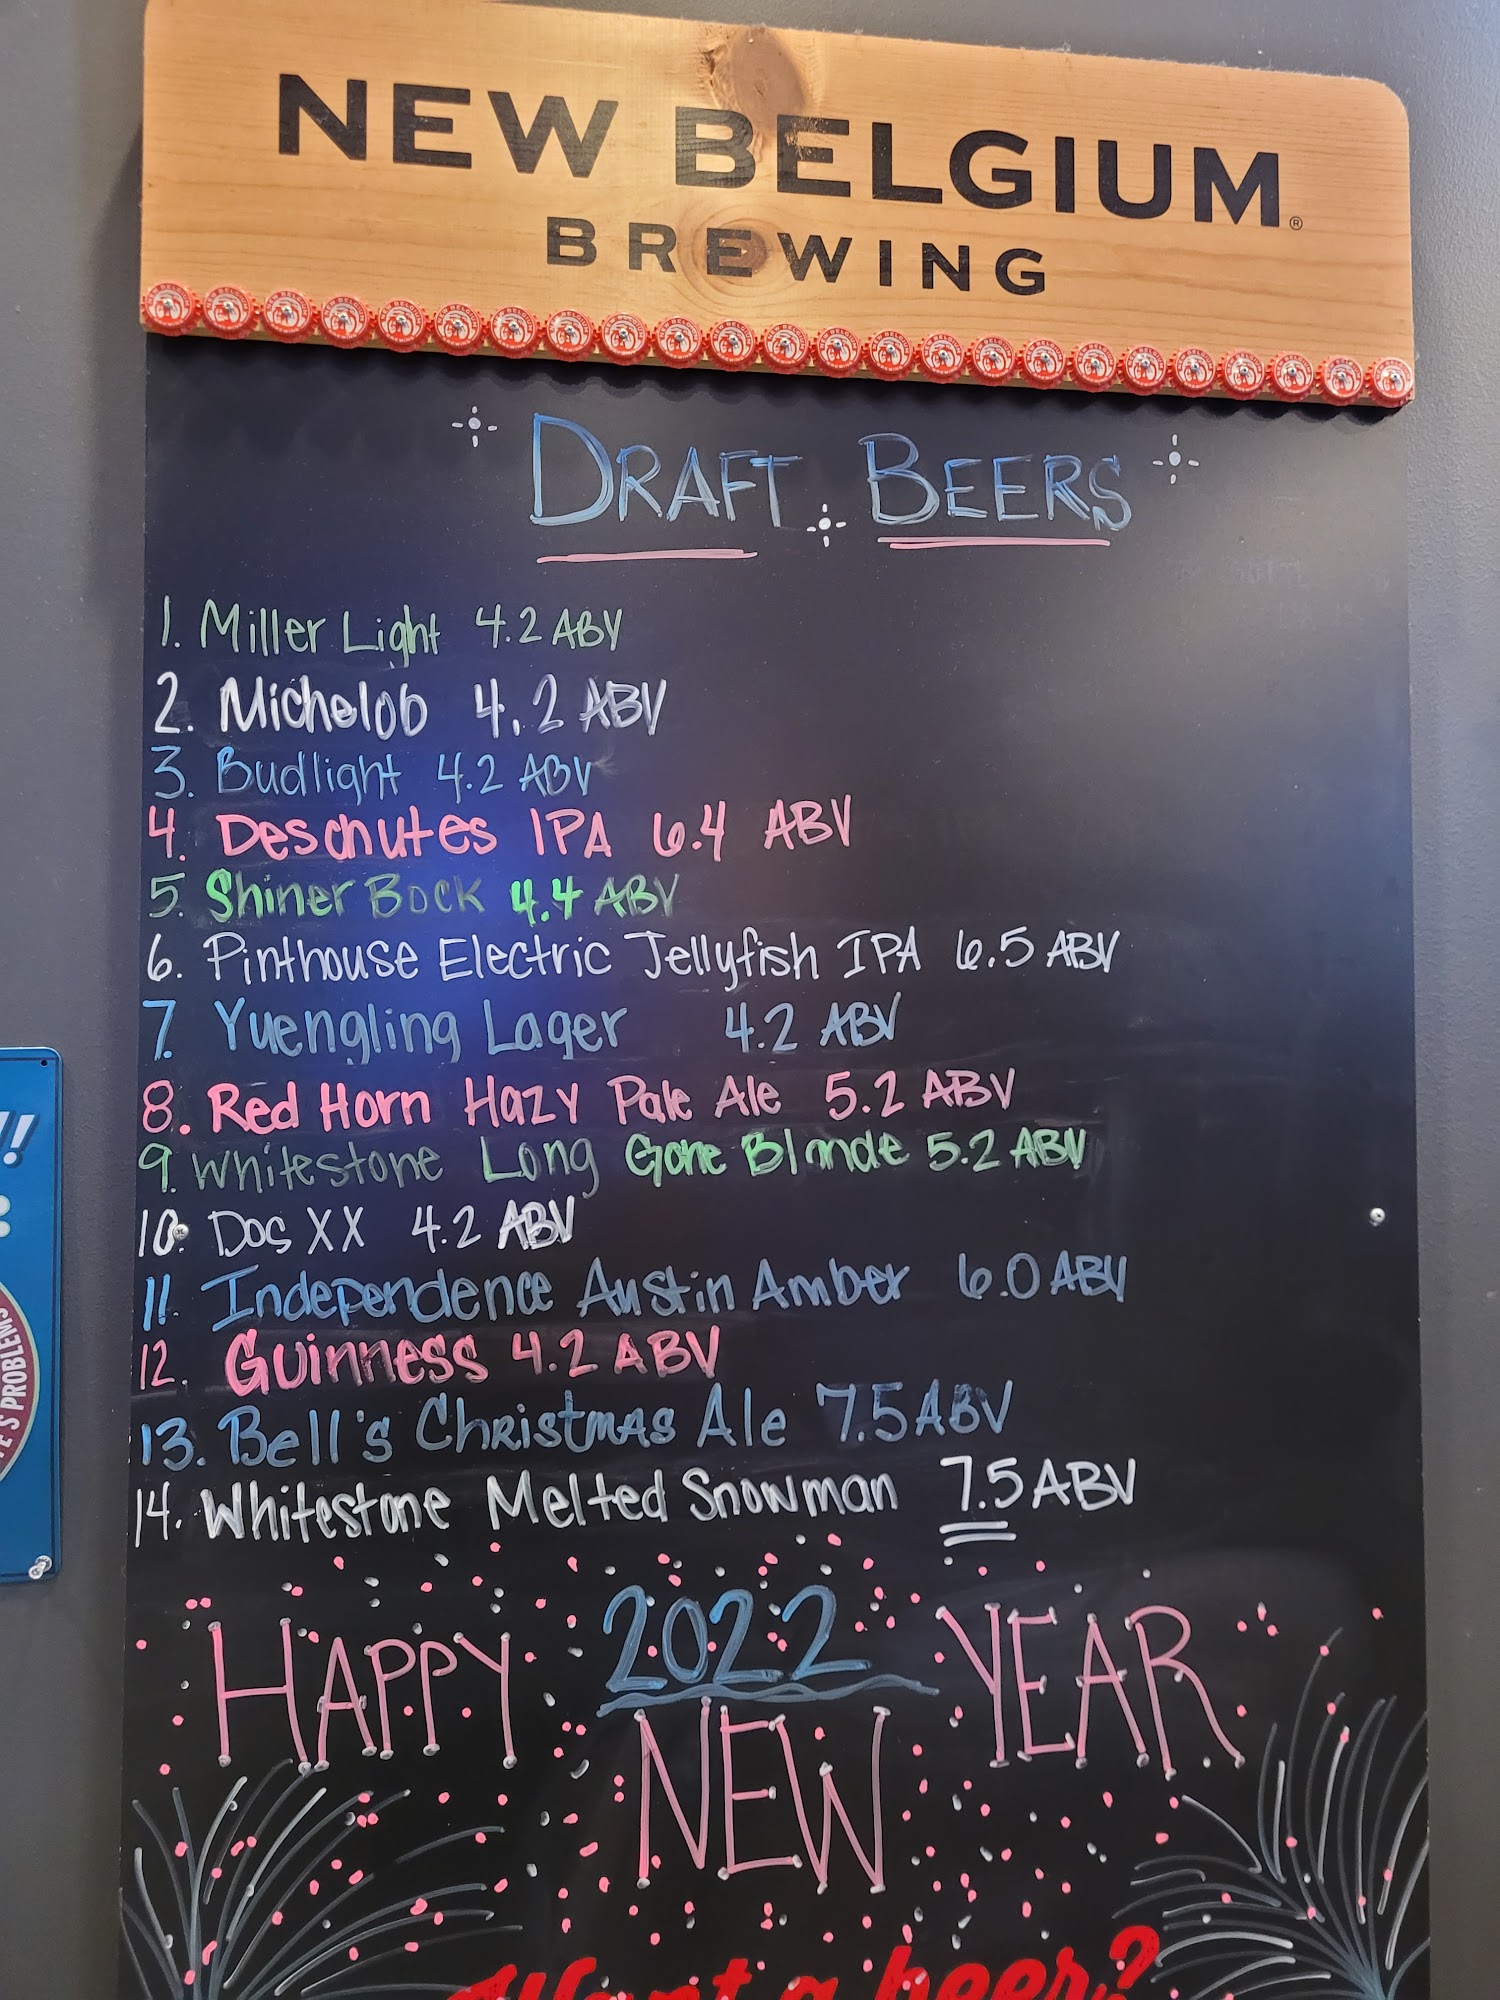 NEW BELGIUM®
BREWING
DRAFT BEERS
1. Miller Light 4.2 ABV
2. Michelob 4.2 ABV
3. Budlight 4.2 ABV
4. Deschutes IPA 6.4 ABV
5. Shiner Bock 4.4 ABV
6. Pinthouse Electric Jellyfish IPA 6.5 ABV
7. Yuengling Lager 4.2 ABV
8. Red Horn Hazy Pale Ale 5.2 ABV
9. Whitestone Long Gone Blonde 5.2 ABV
10. Dos XX 4.2 ABV
11. Independence Austin Amber 6.0 ABV
12. Guinness 4.2 ABV
13. Bell's Christmas Ale 7.5 ABV
14. Whitestone Melted Snowman 7.5 ABV
HAPPY 2022 YEAR
NEW
Want a beer?
!!
PROBLEMS